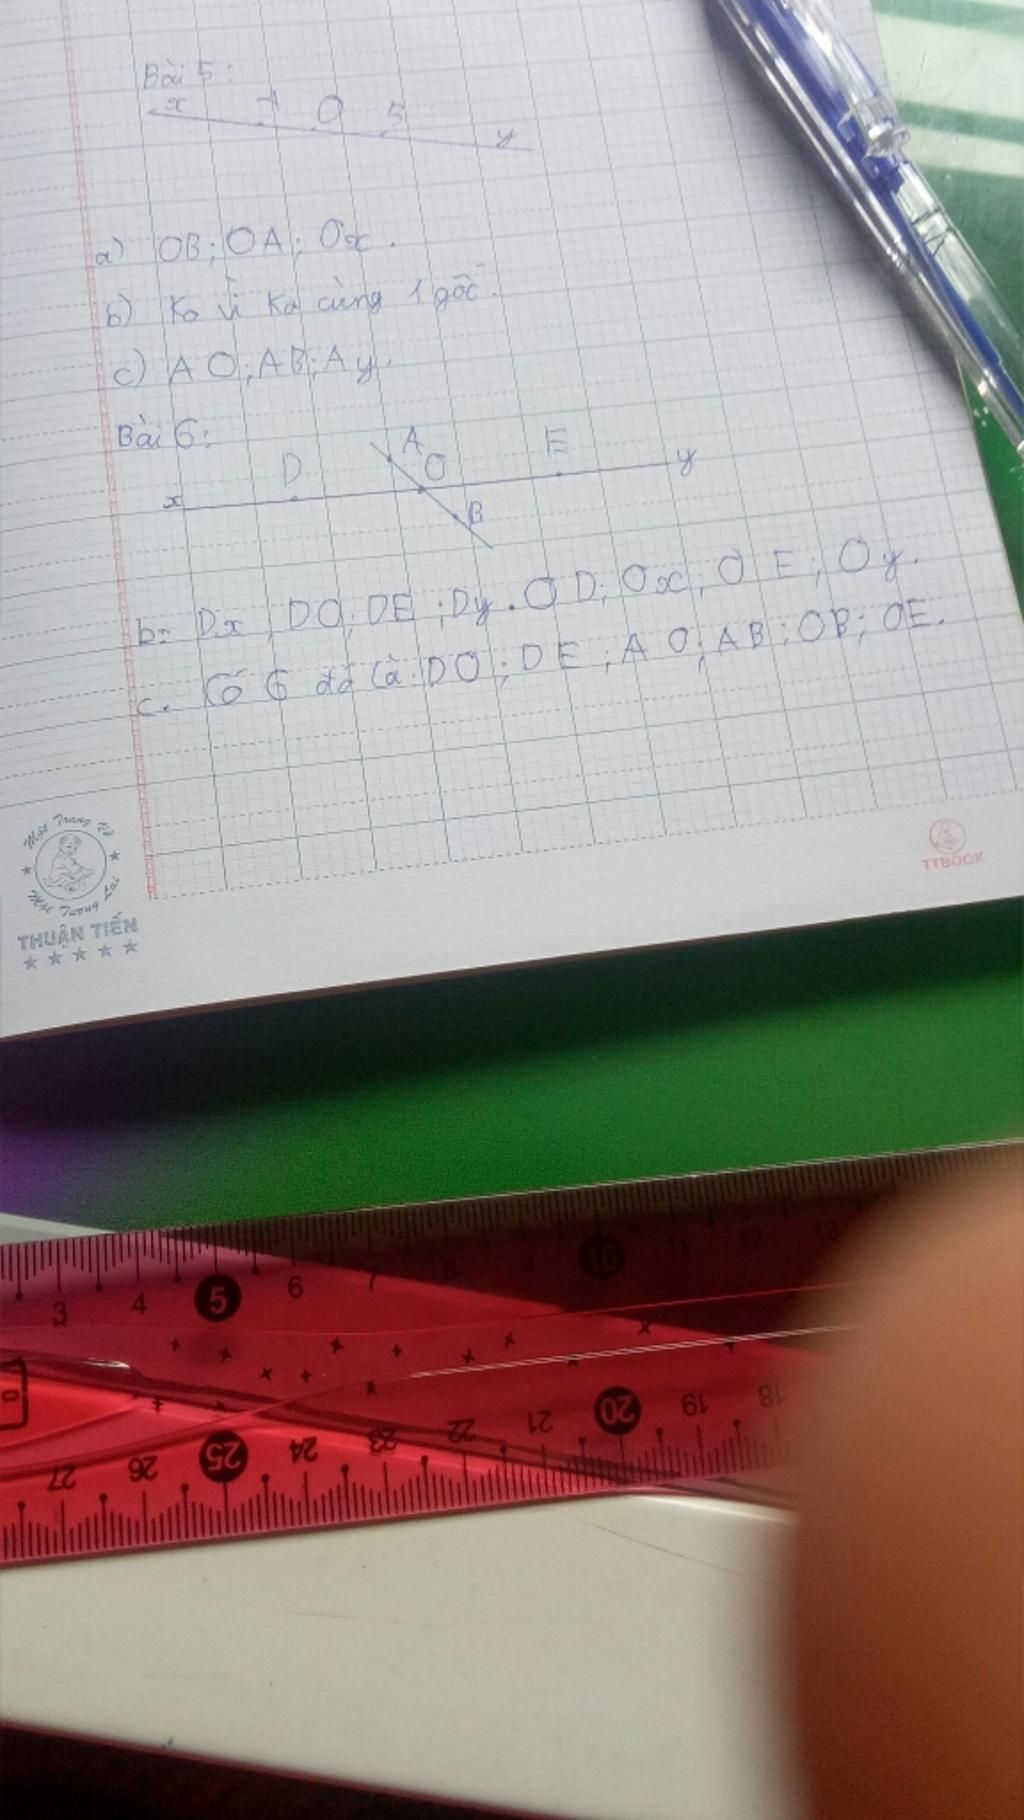 Bài 5:
x A O B y
a) OB; OA; Ox.
b) Ko vì ko cùng 1 gốc.
c) AO; AB; Ay.
Bài 6:
A E
D O y
x B
b: Dx; DO; DE; Dy. OD; Ox; OE; Oy.
c. Có 6 đđ là: DO; DE; AO; AB; OB; OE.
Một Trang Vở
Một Tương Lai
THUẬN TIẾN
TTBOOK
3 4 5 6 7 8 9 10 11 12 13
0
27 26 25 24 23 22 21 20 19 18